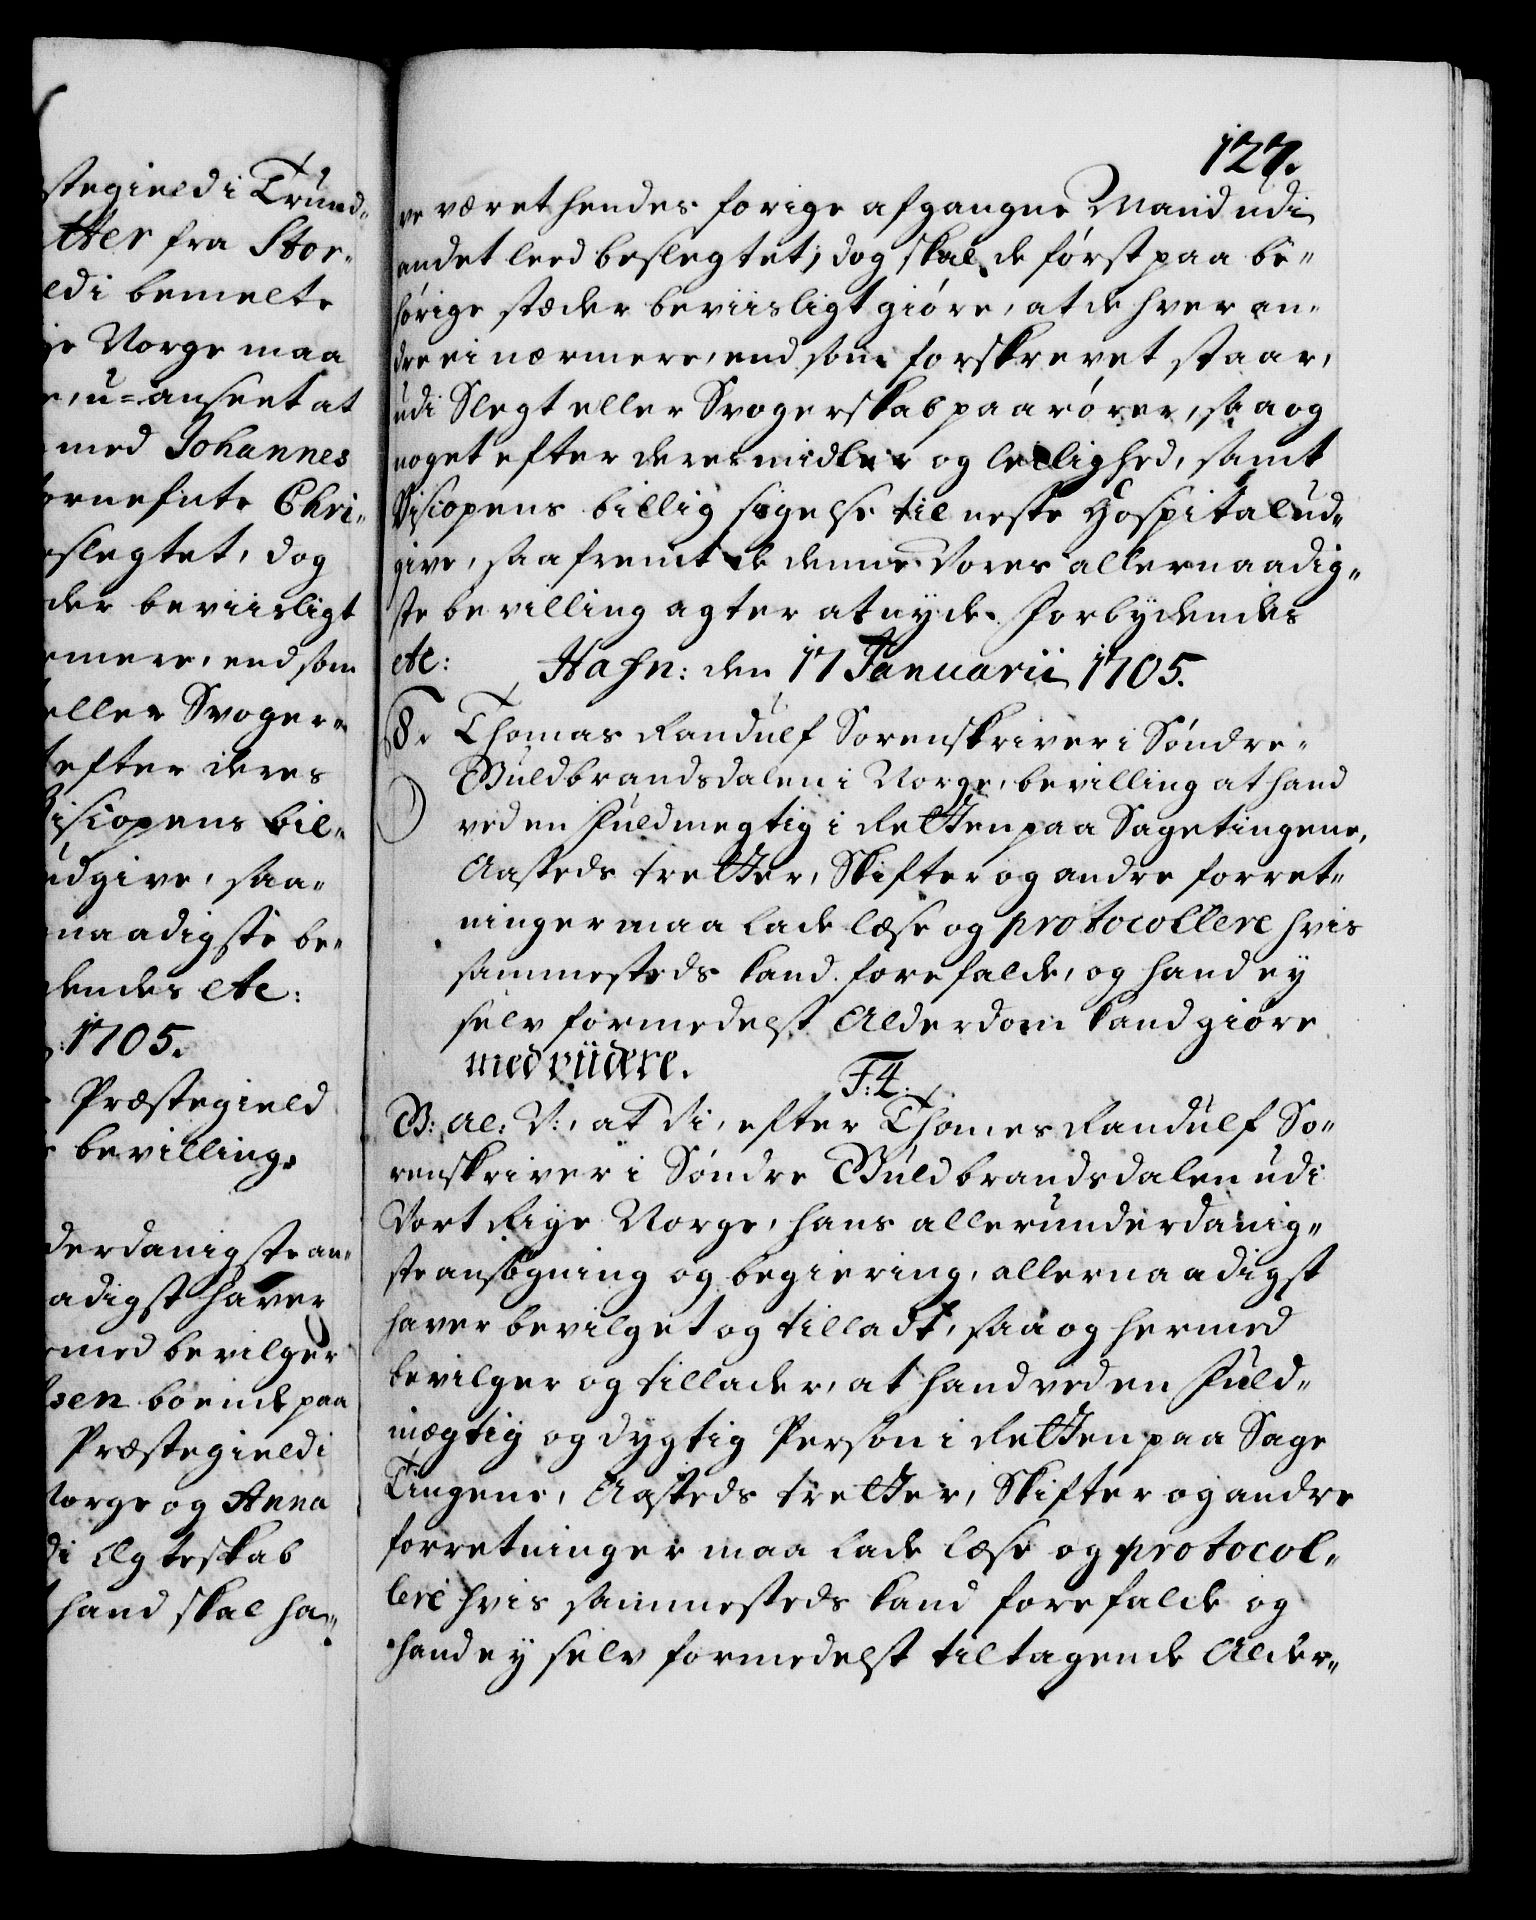 stegield i Trund-
tter fra Stor-
ldi bemelte
ge Norge maa
e, u-anseet at
med Johannes
fornefnte Chri-
slegtet, dog
der beviisligt
rmere, end som
eller Svoger-
efter deres
Biscopens bil-
udgive, saa-
naadigste be-
dendes etc:
1705.
Præstegield
bevilling.
derdanigste an-
adigst haver
med bevilger
sen boende paa
Præstegield i
Norge og Anna
di Ægteskab
hand skal ha-
127.
ve været hendes forige afgangne Mand udi
andet leed beslegtet; dog skal de først paa be-
hørige stæder beviisligt giøre, at de hver an-
dre ei nærmere, end som forskrevet staar,
udi Slegt eller Svogerskab paarører, saa og
noget efter deres midler og leilighed, samt
Biscopens billig sigelse til neste Hospital ud-
give, saafremt de denne Vores allernaadig-
ste bevilling agter at nyde. Forbydendes
etc: Hafn: den 17 Januarii 1705.
8. Thomas Randulf Sorenskriver i Søndre-
Guldbrandsdalen i Norge, bevilling at hand
ved en Fuldmegtig i Retten paa Sagetingene,
Aasteds tretter, Skifter og andre forret-
ninger maa lade læse og protocollere hvis
sammesteds kand forefalde, og hand ey
selv formedelst Alderdom kand giøre
med viidere.
F: 4.
G: Al: V:, at Vi, efter Thomes Randulf So-
renskriver i Søndre Guldbrandsdalen udi
Vort Rige Norge, hans allerunderdanig-
ste ansøgning og begiering, allernaadigst
haver bevilget og tilladt, saa og hermed
bevilger og tillader, at hand ved en Fuld-
mægtig og dygtig Person i Retten paa Sage
Tingene, Aasteds tretter, Skifter og andre
forretninger maa lade læse og protocol-
lere hvis sammesteds kand forefalde og
hand ey selv formedelst tiltagende Alder-